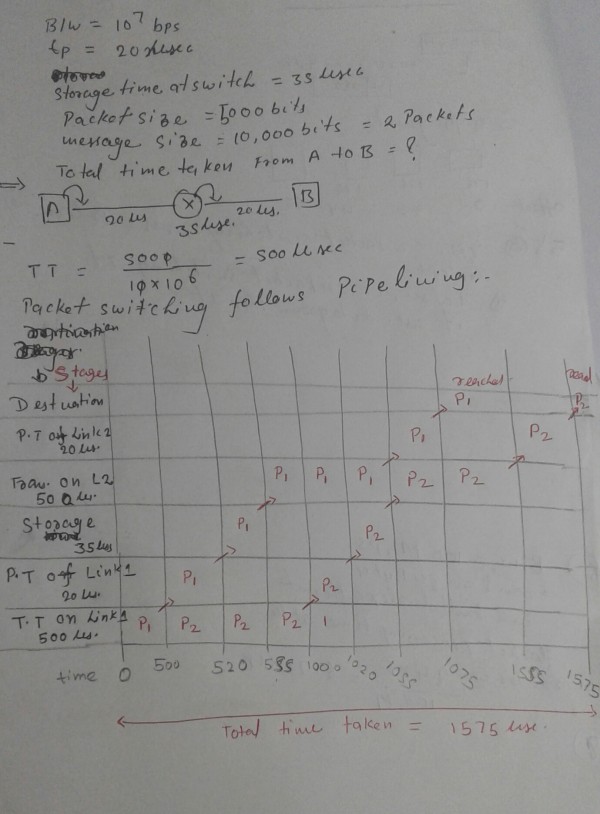 B/w = 10⁷ bps
tp = 20 μsec
Storage time at switch = 35 μsec
Packet size = 5000 bits
message size = 10,000 bits = 2 Packets
Total time taken from A to B = ?
⇒
A 20 μs X 20 μs. B
35 μse.
TT = 5000 / 10×10⁶ = 500 μsec
Packet switching follows Pipelining:-
Stages
reached
Destuation P₁ P₂
P.T off Link2 P₁ P₂
20 μs.
Tran. on L2 P₁ P₁ P₁ P₂ P₂
500 μs.
Storage P₁ P₂
35 μs
P.T off Link1 P₁ P₂
20 μs.
T.T on Link1 P₁ P₂ P₂ P₂
500 μs.
time 0 500 520 555 1000 1020 1055 1075 1555 1575
Total time taken = 1575 μse.